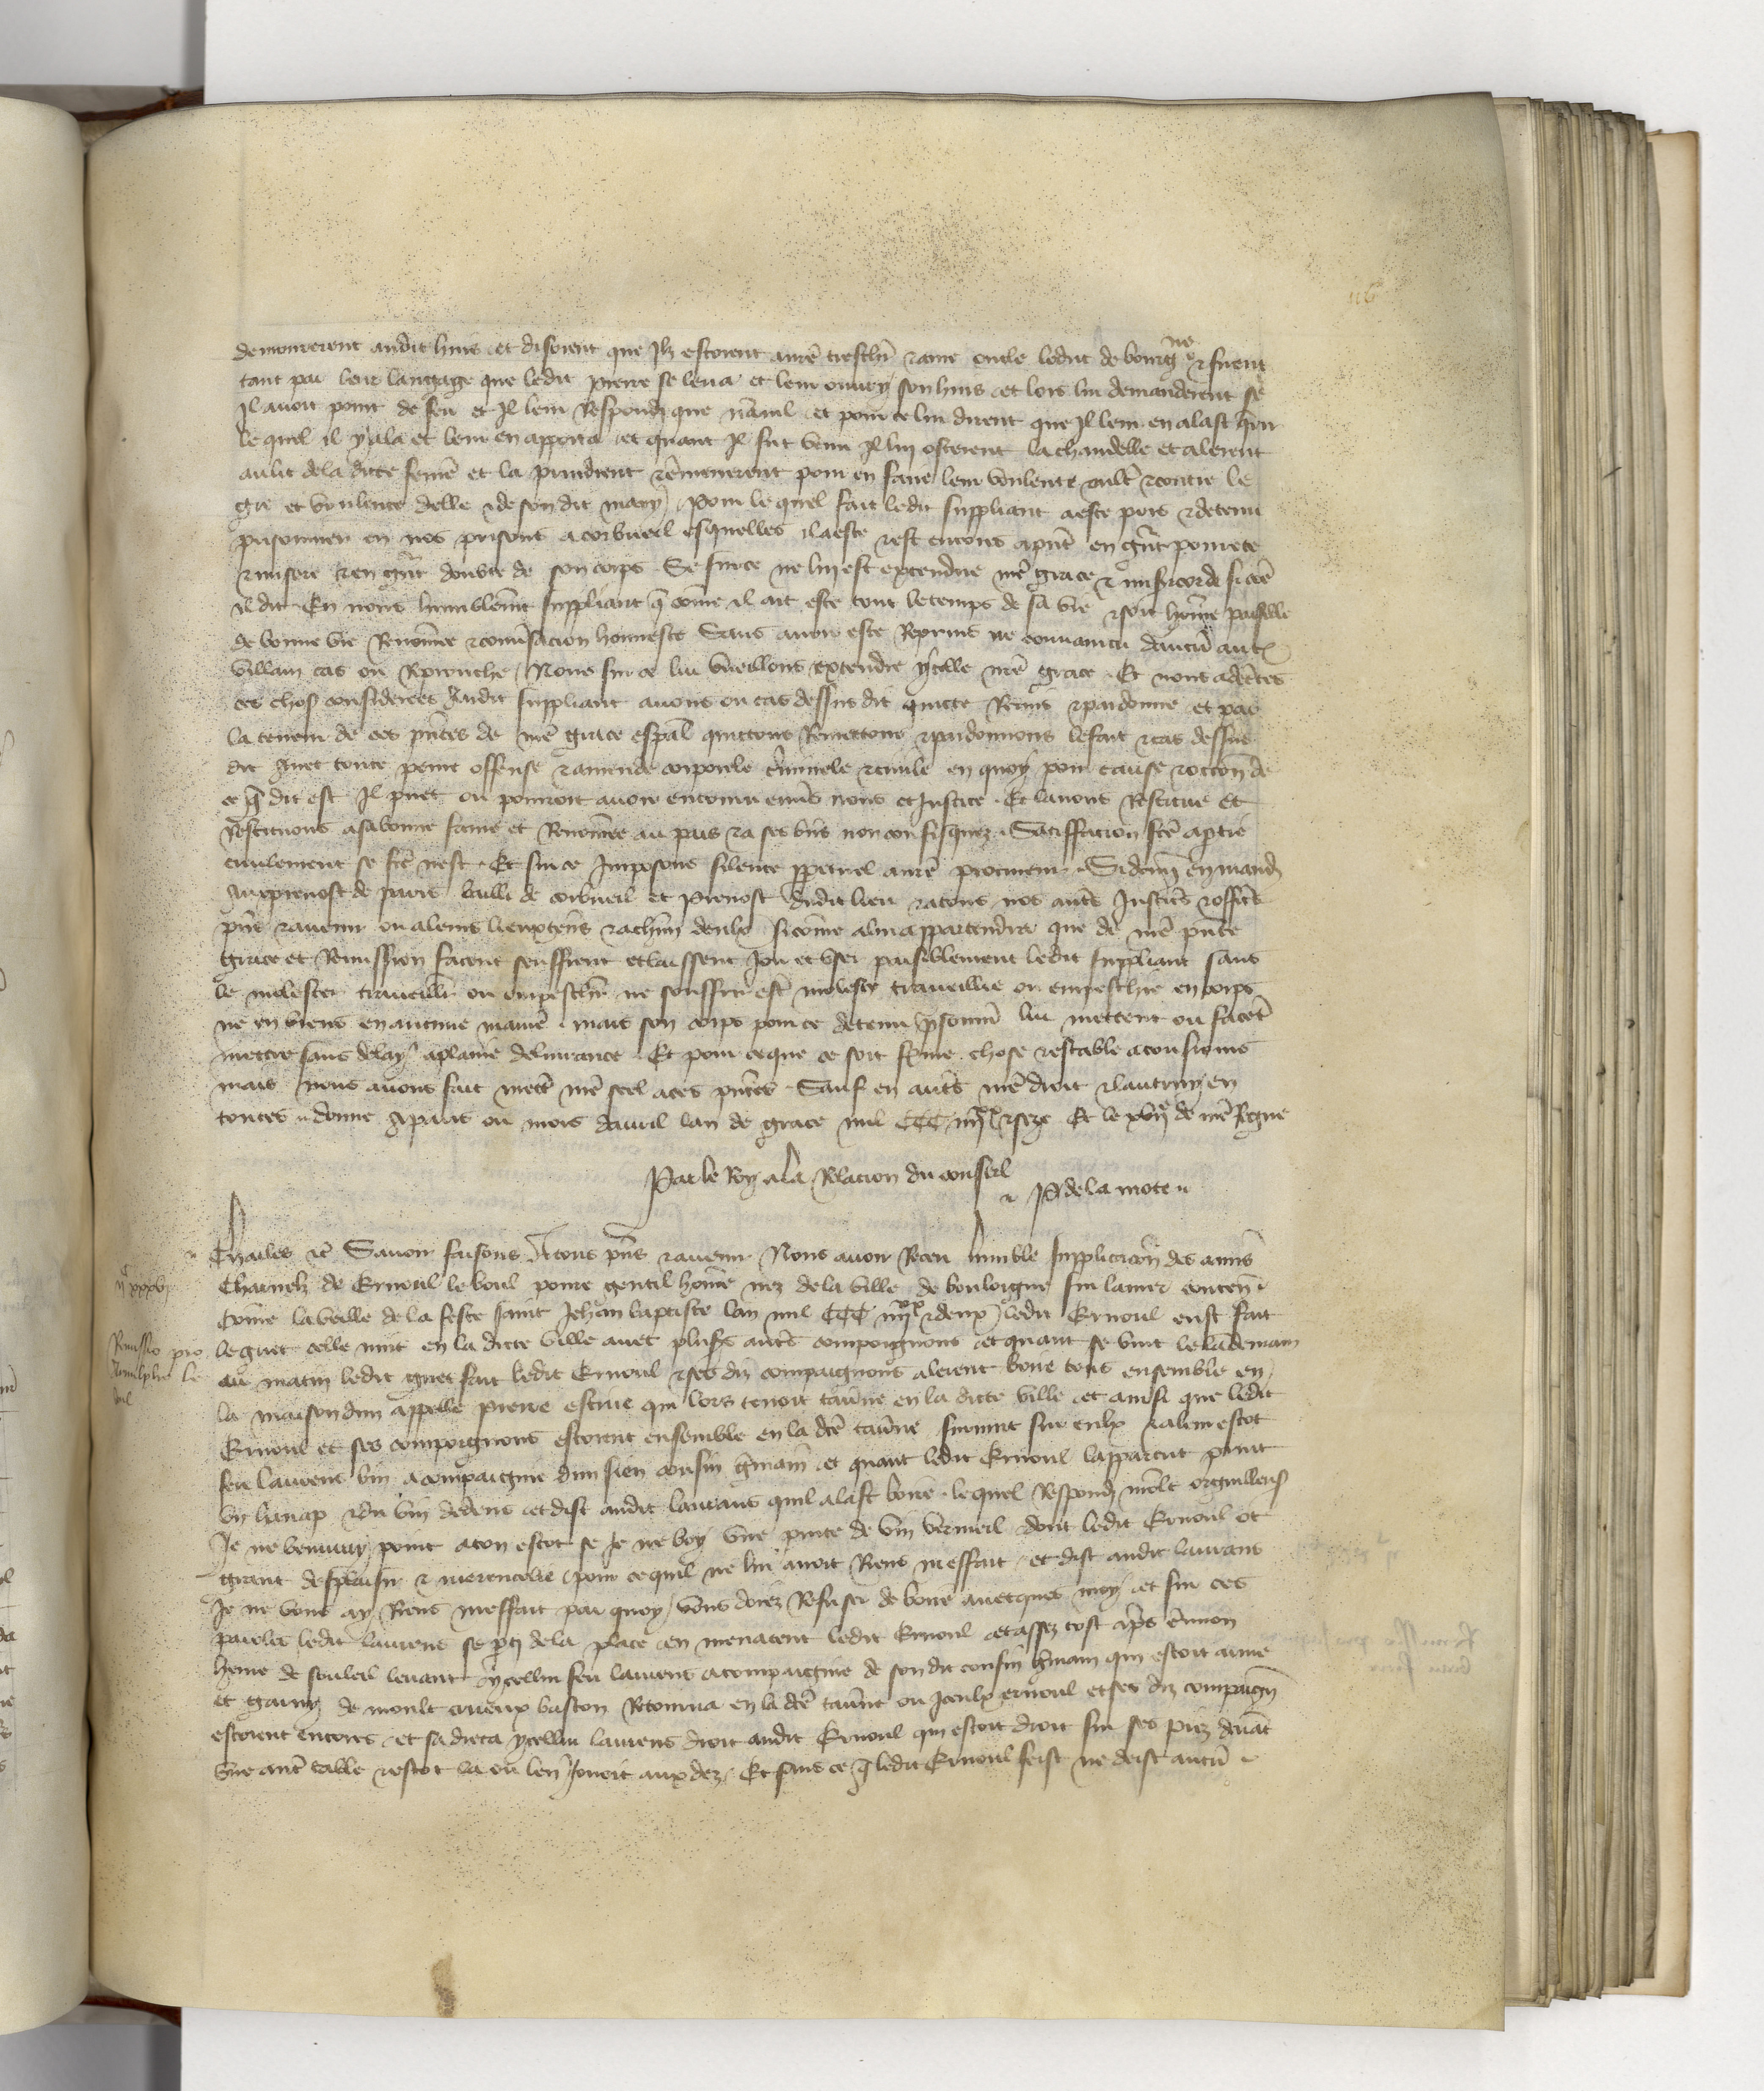 demourerent audit huis et disoient que Ilz estoient a nrē treschr̄ et ame oncle le duc de bourgne et firent
tant par leur langage que ledit pierre se leva et leur ouvry son huis et lors lui demanderent se
Il avoit point de feu et Il leur Respondi que nānil et pour ce lui dirent que Il leur en alast qr̄ir
le quel il y ala et leur en apporta et quant Il fut venu Il lui osterent la chandelle et alerent
au lit de la dicte feme et la prindrent et emmenerent pour en faire leur voulente oultr̄ et contre le
gre et voulente delle et de son dit mary / Pour le quel fait ledit suppliant a este pris et detenu
prisonnier en nos prisons a corbueil esquelles il a este et est encores a pn̄t en gr̄nt povrete
et misere et en gr̄nt doubte de son corps Se sur ce ne lui est extendue nrē grace et misericorde si cōe
il dit En nous humblem̄t suppliant q̄ cōme il ait este tout le temps de sa vie et soit hom̄e paisible
de bonne vie Renōmee et conv̄sacion honneste Sans avoir este Reprins ne convaincu daucū autr̄
villain cas ou Reprouche Nous sur ce lui vueillons extendre ycelle nrē grace Et nous adc̄tes
ces chos̄ considerees audit suppliant avons ou cas dessus dit quicte Remis et pardonne et par
la teneur de ces pn̄tes de nrē grace espāl quictons Remettons et pardonnons le fait et cas dessus
dit avec toute peine offense et amende corporele cr̄iminele et civile en quoy pour cause et occōn de
ce q̄ dit est Il puet ou pourroit avoir encouru env̄s nous et Justice Et lavons Restitue et
Restituons a sa bonne fame et Renōmee au pais et a ses bn̄s non confisquez Satisffacion fc̄e a ptie
civilement se fc̄e nest Et sur ce Imposons silence ppetuel a nrē procureur Si dōnns en mand̄
au prevost de paris bailli de corbueil et Prevost dudit lieu et a tous nos autr̄s Justic̄s et offic̄s
pn̄s et avenir ou a leurs lieuxten̄s et a chūn deulx si cōme a lui appartendra que de nrē pn̄te
grace et Remission facent seuffrent et laissent Joir et user paisiblement ledit suppliant sans
le molester travaillr̄ ou empeschr̄ ne souffrir estr̄ moleste travaillie ou empeschie en corps
ne en biens en aucune manier̄ mais son corps pour ce detenu pisonnr̄ lui mettent ou facēt
mettre sans delay a plaine delivrance Et pour ce que ce soit ferme chose et estable a tousjours
mais Nous avons fait mettr̄ nrē scel a ces pn̄tes Sauf en autr̄s nrē droit et lautruy en
toutes donne a paris ou mois davril lan de grace mil CCC iiijxx et seze Et le xvije de nrē Regne
Par le Roy a la Relacion du conseil
P de la mote
Charles etc̄ Savoir faisons A tous pn̄s et avenir Nous avoir Receu humble Supplicaciōn des amis
charnelz de Ernoul le boul povre gentil hom̄e nez de la ville de bouloigne sur la mer contenāt
Cōme la veille de la feste saint Jehan baptiste lan mil CCC iiijxx et deux ledit Ernoul eust fait
le guet celle nuit en la dicte ville avec plus̄s autr̄s compaignons et quant se vint le lādemain
au matin ledit guet fait ledit Ernoul et ses diz compaignons alerent boire tous ensemble en
la maison dun appelle pierre estrue qui lors tenoit tav̄ne en la dicte ville et ainsi que ledit
Ernoul et ses compaignons estoient ensemble en la dc̄e tav̄ne survint sur eulx et a leur escot
feu laurens bin acompaignie dun sien cousin g̃main et quant ledit Ernoul lapparcut print
un hanap et du vin dedens et dist audit laurens quil alast boire le quel Respondi moult orgueilleus̄
Je ne bevray point a ton escot se Je ne boy une pinte de vin vermeil dont ledit Ernoul ot
grant desplaisir et merencolie pour ce quil ne lui avoit Riens meffait et dist audit laurens
Je ne vous ay Riens meffait par quoy vous doiez Refuser de boire avecques moy et sur ces
paroles ledit laurens se pti de la place en menacent ledit Ernoul et assez tost apr̄s environ
heure de souleil levant ycellui feu laurens acompaignie de son dit cousin g̃main qui estoit arme
et garny de moult crueux baston Retourna en la dc̄e tav̄ne ou Iceulx ernoul et ses diz compaign̄
estoient encores et sadreca ycellui laurens droit audit Ernoul qui estoit droit sur ses piez devāt
une autr̄ table et escot la ou len Jouoit aux dez Et sans ce q̄ ledit Ernoul feist ne deist aucū
ijc xxxvj
Remissio pro
Arnulpho le
bul